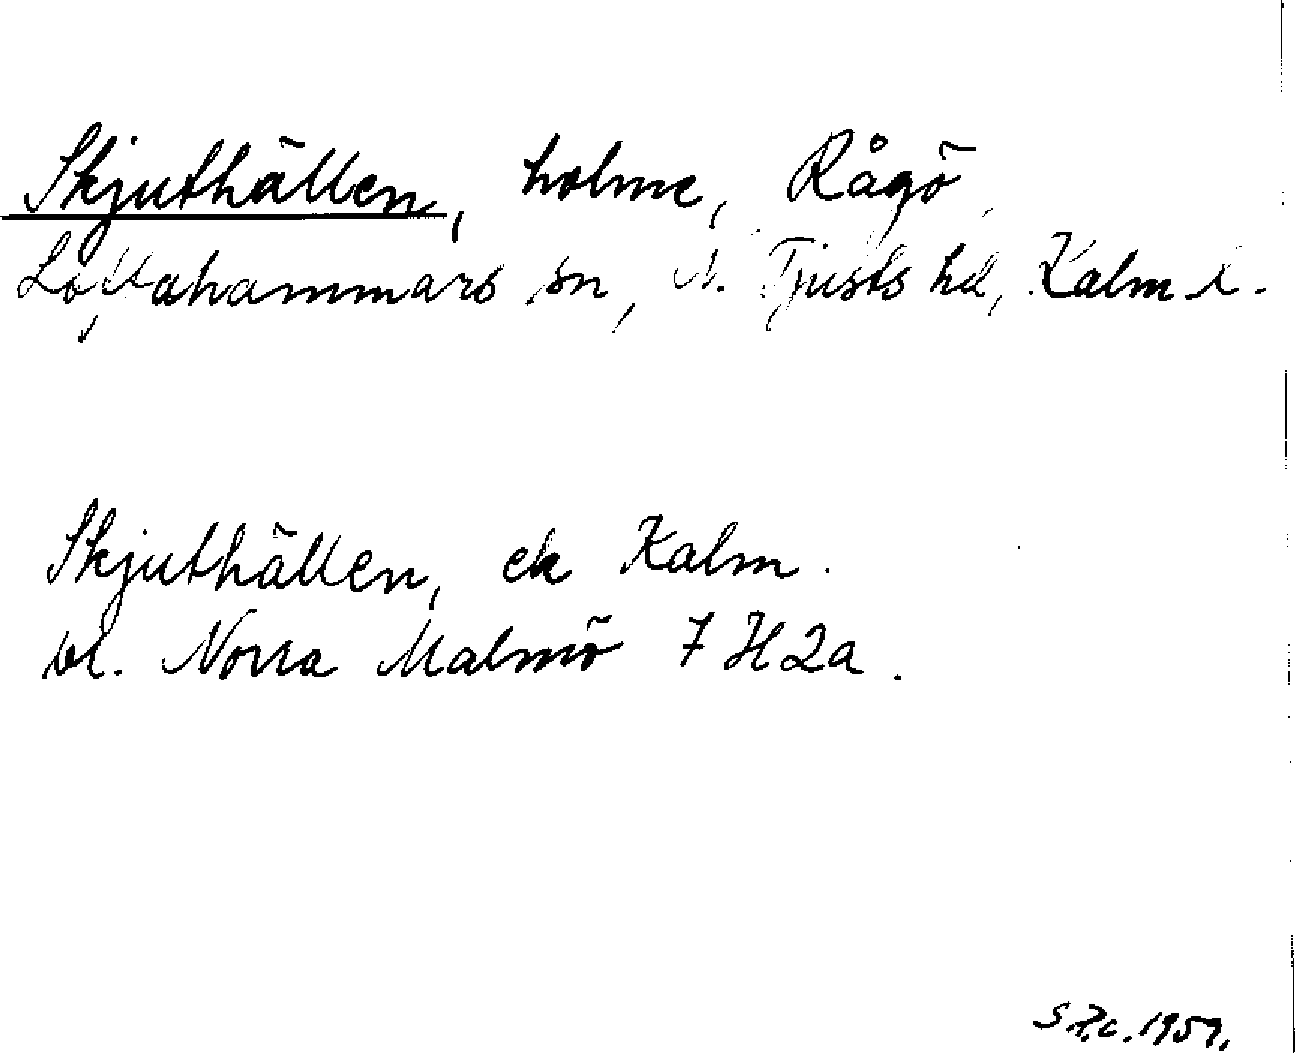 Skjuthällen, holme, Rågö,
Loftahammars sn, N. Tjusts hd, Kalm l.
Skjuthällen, ek Kalm.
bl. Norra Malmö 7 H 2a.
1957.